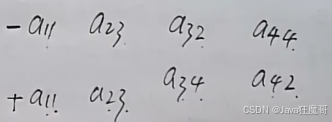 - a11 a23 a32 a44
+ a11 a23 a34 a42
CSDN @Java狂魔哥